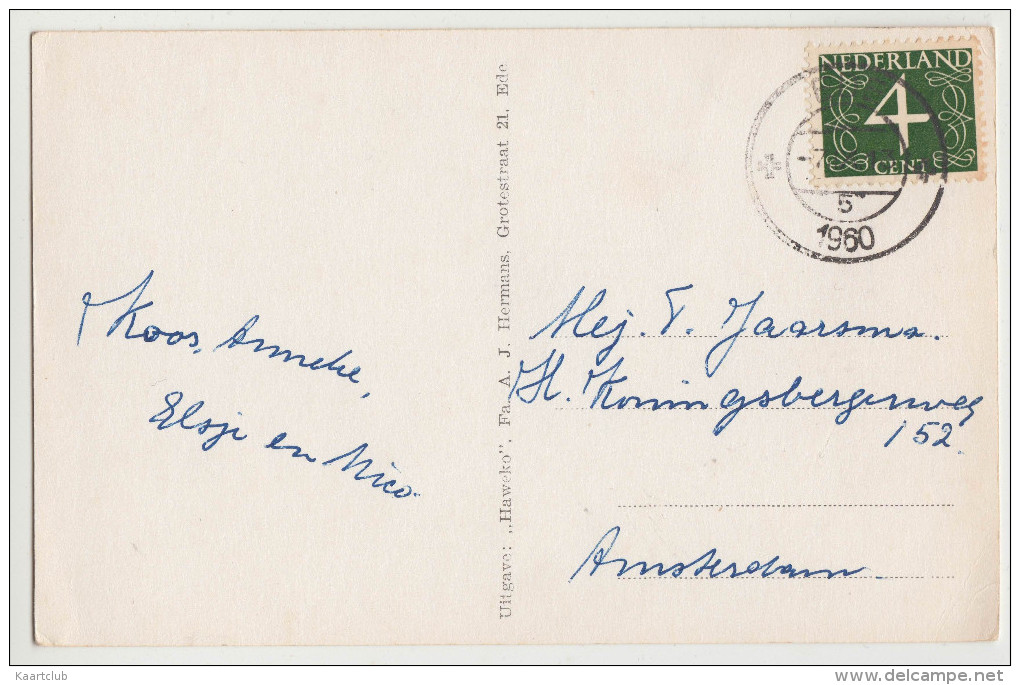 NEDERLAND
4
CENT
5
1960
Koos, Anneke,
Elsje en Nico.
Uitgave: „Haweko”, Fa. A. J. Hermans, Grotestraat 21, Ede
Mej. T. Jaarsma.
H. Koningsbergerweg
152.
Amsterdam.
Kaartclub
www.delcampe.net